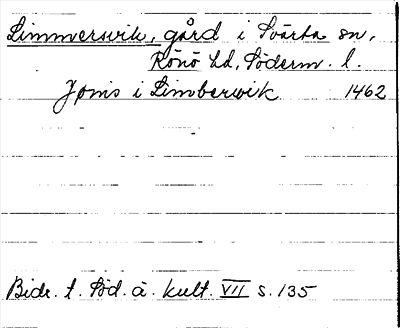 Limmersvik, gård i Svärta sn,
Rönö hd, Söderm. l.
Jönis i Limberwik 1462
Bidr. t. Söd. ä. kult. VII s. 135